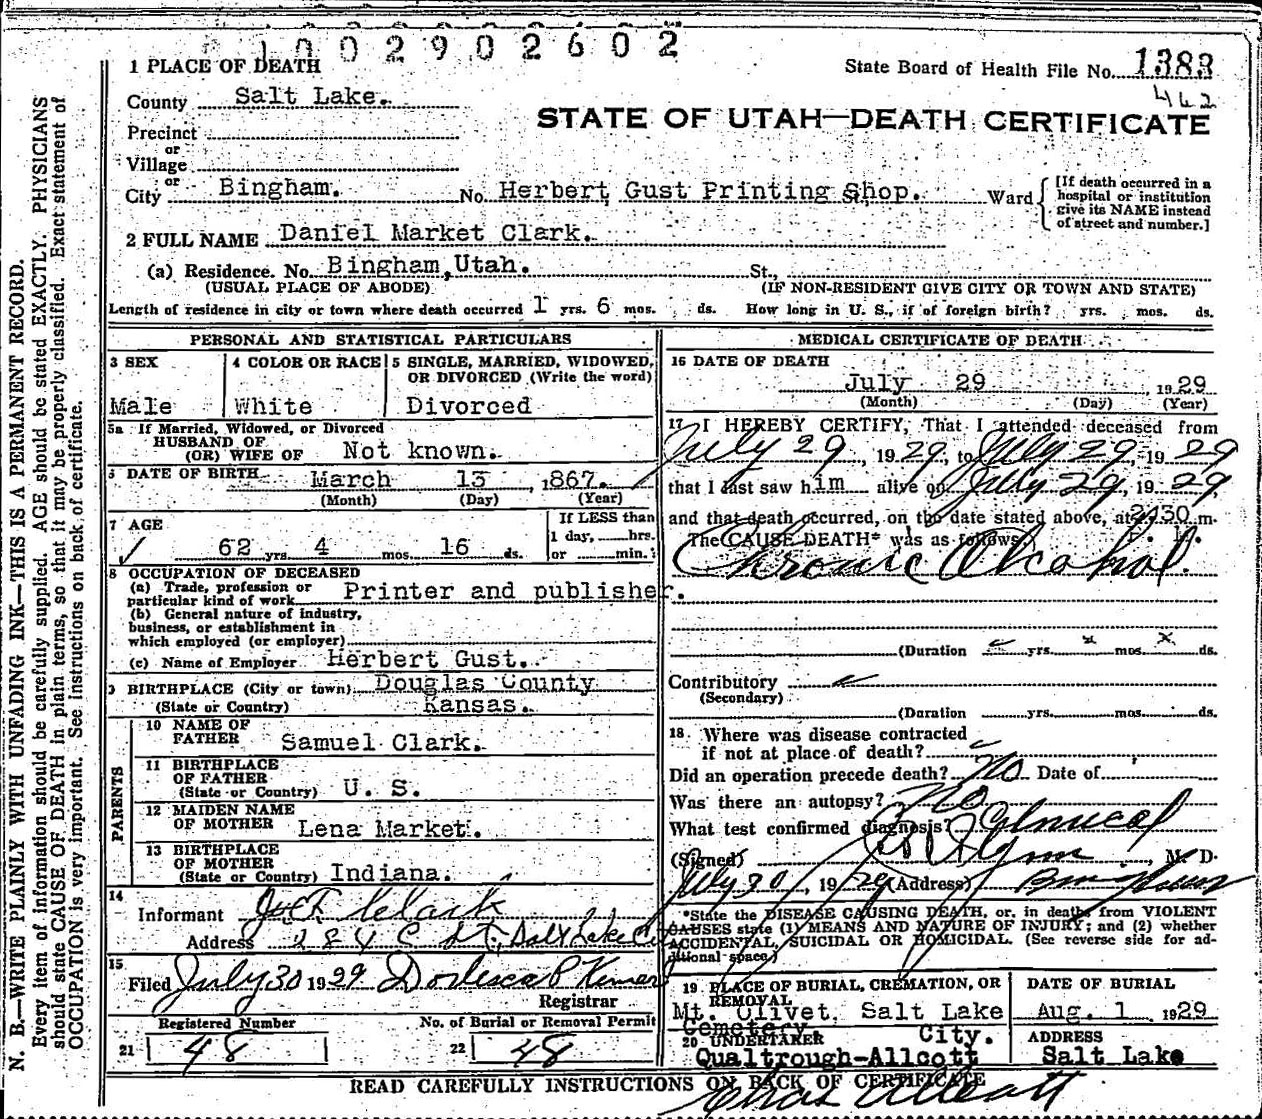 1002902602
1 PLACE OF DEATH
State Board of Health File No. 1383
County Salt Lake.
462
STATE OF UTAH—DEATH CERTIFICATE
Precinct
or
Village
or
City Bingham. No. Herbert Gust Printing Shop. Ward
[If death occurred in a
hospital or institution
give its NAME instead
of street and number.]
2 FULL NAME Daniel Market Clark.
(a) Residence. No. Bingham, Utah. St.,
(USUAL PLACE OF ABODE) (IF NON-RESIDENT GIVE CITY OR TOWN AND STATE)
Length of residence in city or town where death occurred 1 yrs. 6 mos. ds. How long in U. S., if of foreign birth? yrs. mos. ds.
PERSONAL AND STATISTICAL PARTICULARS
3 SEX
Male
4 COLOR OR RACE
White
5 SINGLE, MARRIED, WIDOWED,
OR DIVORCED (Write the word)
Divorced
5a If Married, Widowed, or Divorced
HUSBAND OF
(OR) WIFE OF Not known.
6 DATE OF BIRTH March 13, 1867.
(Month) (Day) (Year)
7 AGE
62 yrs. 4 mos. 16 ds.
If LESS than
1 day, hrs.
or min.
8 OCCUPATION OF DECEASED
(a) Trade, profession or
particular kind of work Printer and publisher.
(b) General nature of industry,
business, or establishment in
which employed (or employer)
(c) Name of Employer Herbert Gust.
9 BIRTHPLACE (City or town) Douglas County
(State or Country) Kansas.
PARENTS
10 NAME OF
FATHER Samuel Clark.
11 BIRTHPLACE
OF FATHER
(State or Country) U. S.
12 MAIDEN NAME
OF MOTHER Lena Market.
13 BIRTHPLACE
OF MOTHER
(State or Country) Indiana.
14
Informant Clark
Address 284 C St, Salt Lake
15
Filed July 30 1929
Registrar
Registered Number
21 48
No. of Burial or Removal Permit
22 48
MEDICAL CERTIFICATE OF DEATH
16 DATE OF DEATH
July 29 1929
(Month) (Day) (Year)
17 I HEREBY CERTIFY, That I attended deceased from
July 29, 1929, to July 29, 1929
that I last saw him alive on July 29, 1929,
and that death occurred, on the date stated above, at 2:30 m.
The CAUSE DEATH* was as follows:
Chronic Alcohol.
(Duration yrs. x mos. x ds.
Contributory
(Secondary)
(Duration yrs. mos. ds.
18. Where was disease contracted
if not at place of death?
Did an operation precede death? No Date of
Was there an autopsy? No
What test confirmed diagnosis?
(Signed) M. D.
July 30, 1929 (Address) Bingham
*State the DISEASE CAUSING DEATH, or, in deaths from VIOLENT
CAUSES state (1) MEANS AND NATURE OF INJURY; and (2) whether
ACCIDENTAL, SUICIDAL OR HOMICIDAL. (See reverse side for ad-
ditional space.)
19 PLACE OF BURIAL, CREMATION, OR
REMOVAL
Mt. Olivet, Salt Lake
Cemetery. City.
DATE OF BURIAL
Aug. 1 1929
20 UNDERTAKER
Qualtrough-Allcott
ADDRESS
Salt Lake
READ CAREFULLY INSTRUCTIONS ON BACK OF CERTIFICATE
N. B.—WRITE PLAINLY WITH UNFADING INK—THIS IS A PERMANENT RECORD.
Every item of information should be carefully supplied. AGE should be stated EXACTLY. PHYSICIANS
should state CAUSE OF DEATH in plain terms, so that it may be properly classified. Exact statement of
OCCUPATION is very important. See instructions on back of certificate.